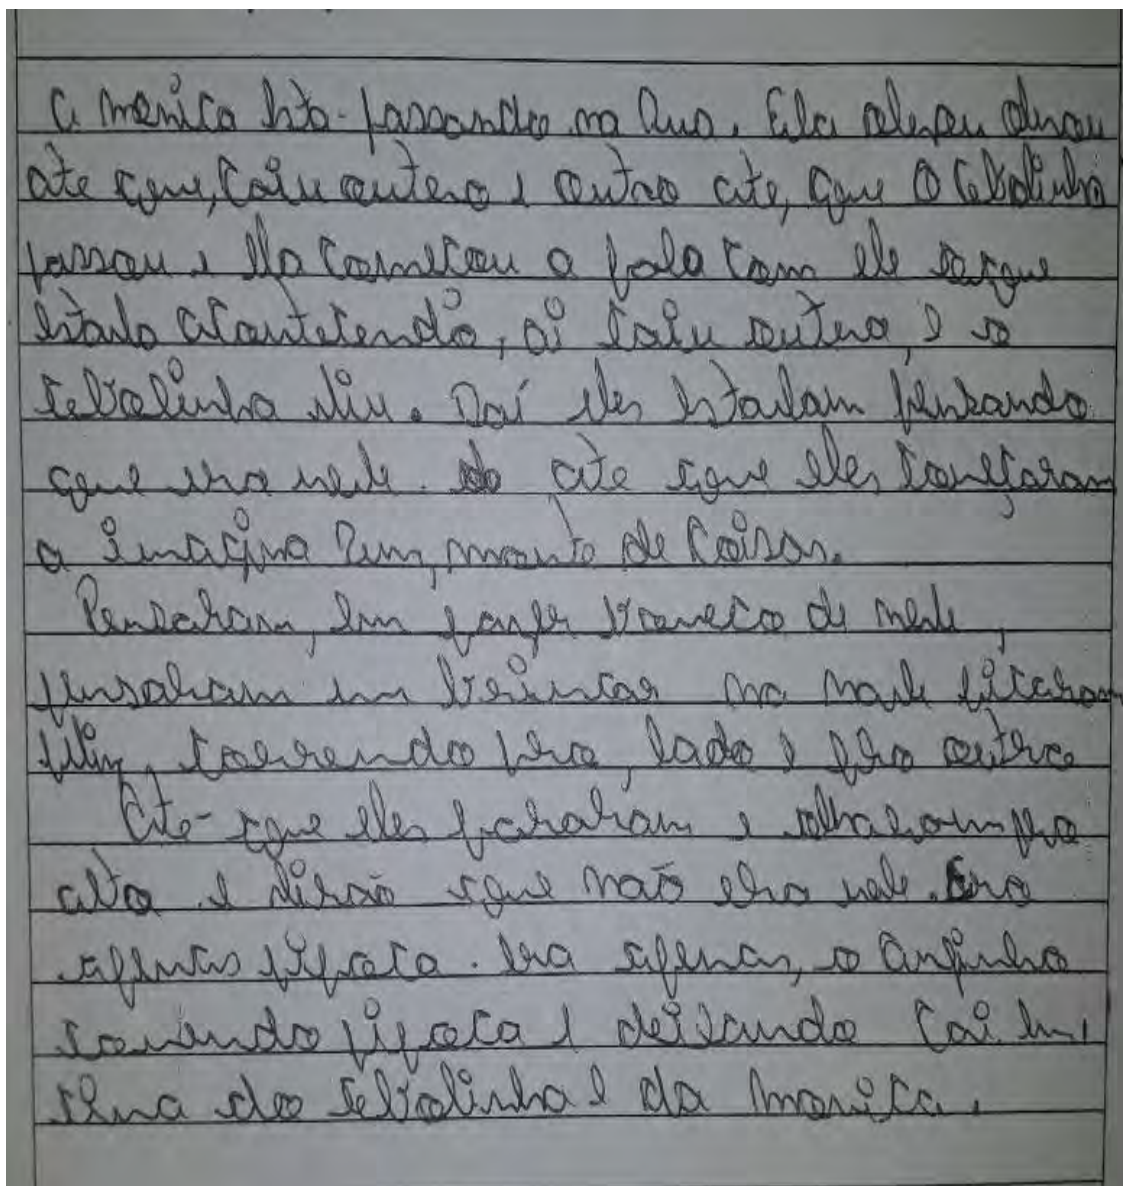 A menica esta passando na Rua. Ela
ate que, caiu outero e outro ate, que O Cebolinha
passou e ela comecou a fala com ele oque
estava acontecendo, ai caiu outero, e o
cebolinha viu. Daí eles estavam pensando
que era neve. ate que eles começaram
a imagina um, monte de Coisas.
Pensaram, em fazer boneco de neve,
pensaram em brincar na neve ficaram
correndo pra, lado e pro outro
Ate que eles pararam e olharam pro
alto e que não era neve. Era
apenas pipoca. era apenas, o Anjinho
comendo pipoca e deixando cai em
cima do cebolinha e da monica.